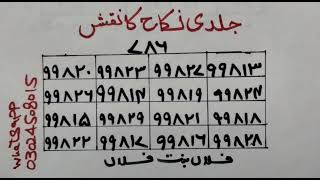 جلدی نکاح کا نقش
۷۸۶
۹۹۸۲۰ ۹۹۸۲۳ ۹۹۸۲۷ ۹۹۸۱۳
۹۹۸۲۶ ۹۹۸۱۴ ۹۹۸۱۹ ۹۹۸۲۴
۹۹۸۱۵ ۹۹۸۲۹ ۹۹۸۲۱ ۹۹۸۱۸
۹۹۸۲۲ ۹۹۸۱۷ ۹۹۸۱۶ ۹۹۸۲۸
فلاں بنت فلاں
whatsapp
03024508015